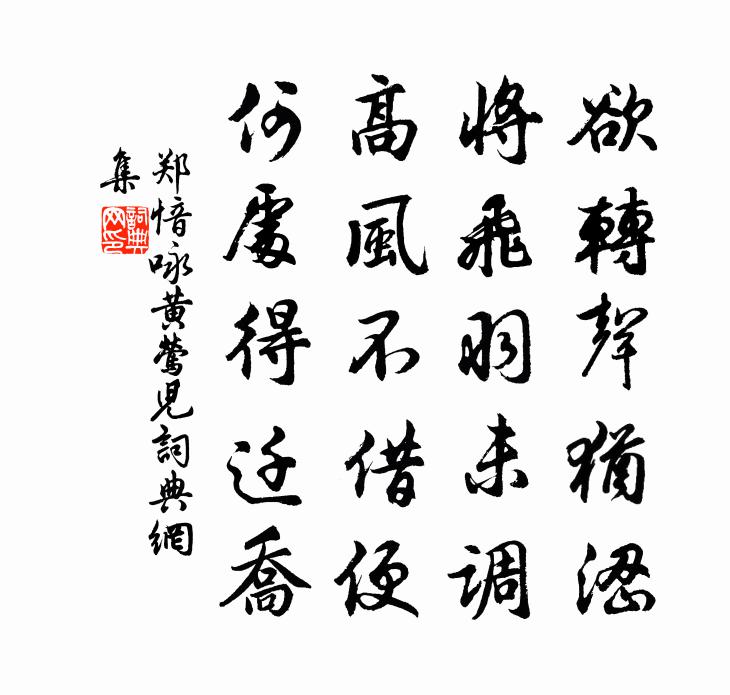 欲轉聲猶澀
將飛羽未調
高風不借便
何處得迁喬
郑愔咏黄鶯児詞典網
集
詞典
网印